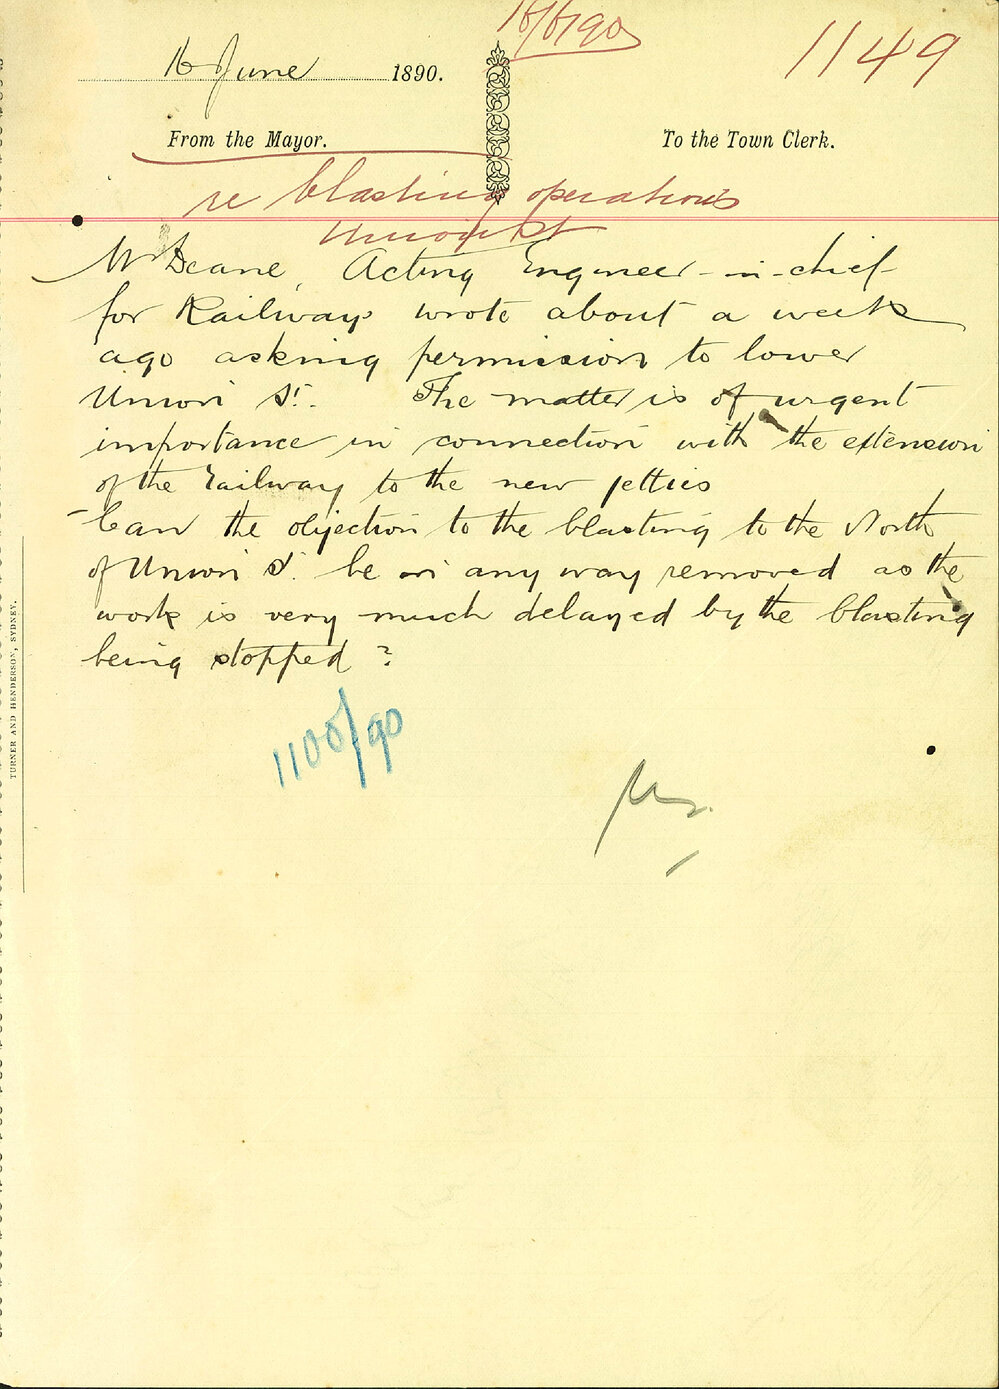 16/6/90
1149
16 June 1890.
From the Mayor. To the Town Clerk.
re blasting operations
Union St
Mr Deane, Acting Engineer-in-chief
for Railways wrote about a week
ago asking permission to lower
Union St. The matter is of urgent
importance in connection with the extension
of the Railway to the new jetties
- Can the objection to the blasting to the North
of Union St. be in any way removed as the
work is very much delayed by the blasting
being stopped?
1100/90
TURNER AND HENDERSON, SYDNEY.